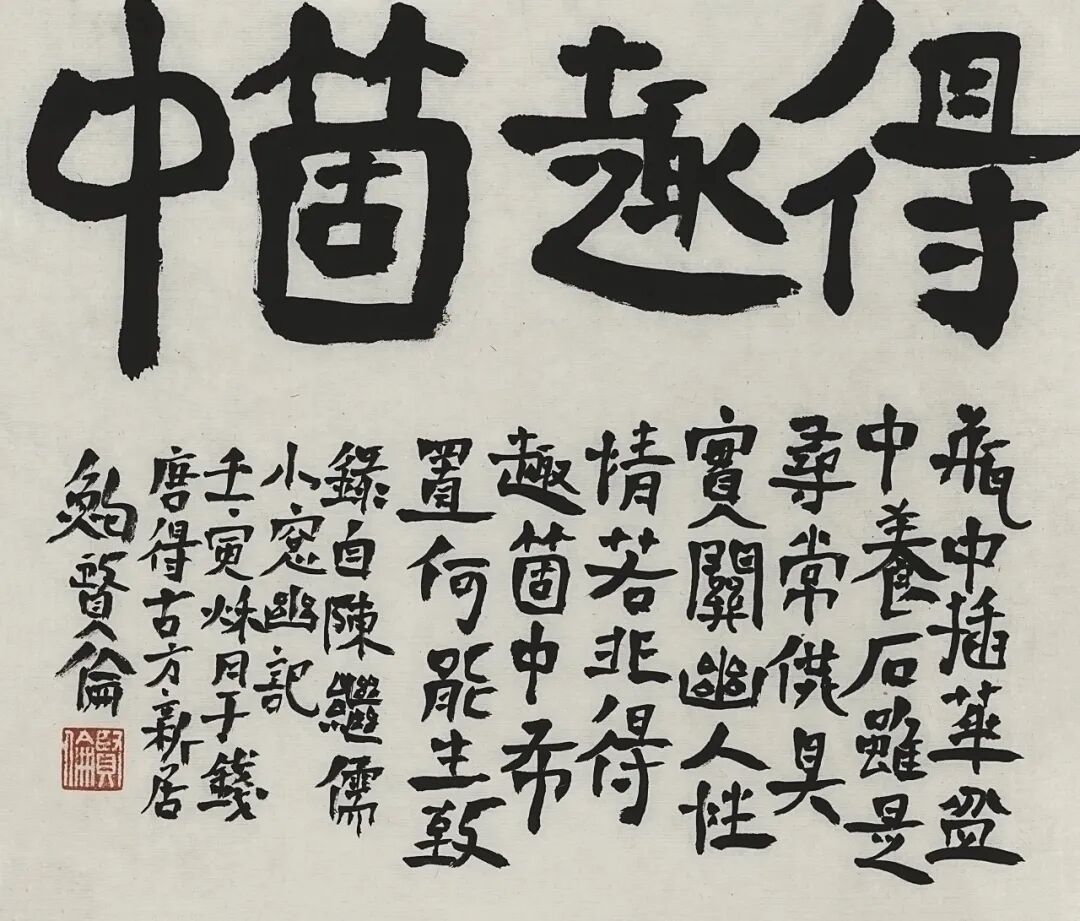 得趣箇中
瓶中插華盆
中養石雖是
尋常供具
實關幽人性
情若非得
趣箇中布
置何能生致
錄自陳繼儒
小窓幽記
壬寅秋月于錢
唐得古方新居
鮑賢倫
賢倫